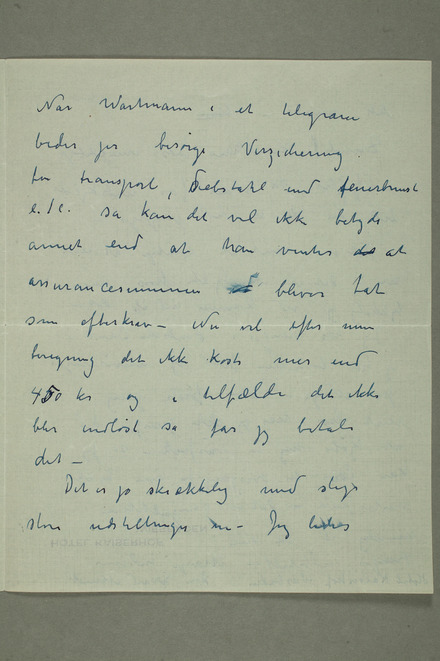 Når Wartmann i et telegram
beder jer besørge Versicherung
for transport, Diebstahl und feuerbrunst
e.tc. så kan det vel ikke betyde
annet end at han venter at
assurancesummen blever tat
som efterkrav – Nu vil efter min
beregning det ikke koste mer end
450 kr og i tilfælde det ikke
blir indløst så får jeg betale
det –
Det er jo skrækkelig med slige
store udstillinger – Jeg